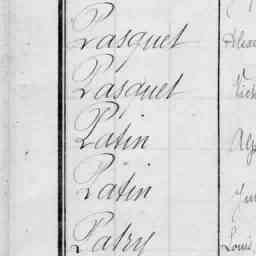 Pasquet
Pasquet
Patin
Patin
Patry Louis,